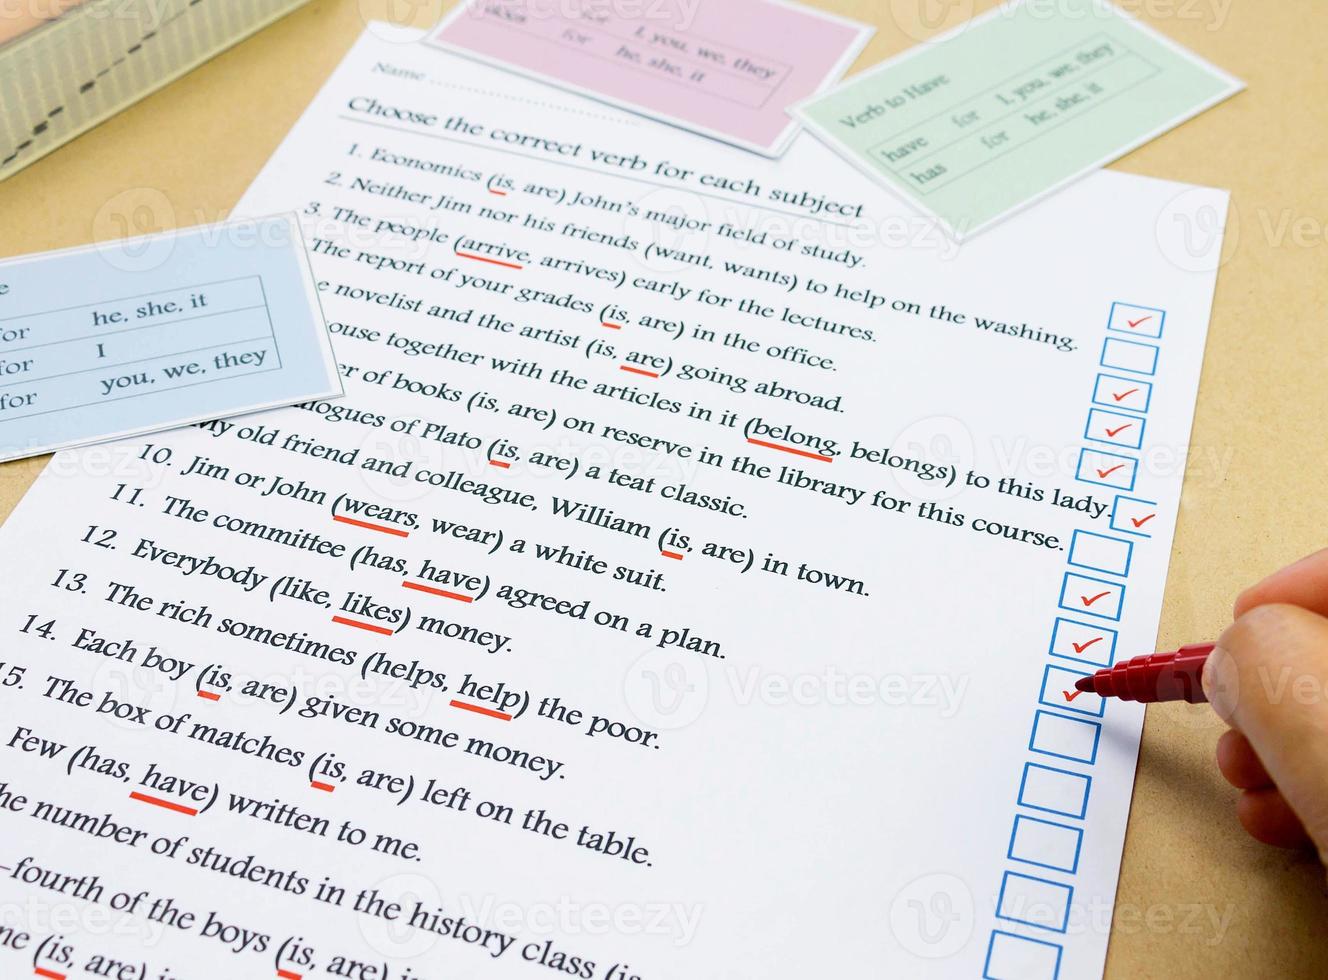 for I, you, we, they
for he, she, it
Verb to Have
have for I, you, we, they
has for he, she, it
Name
Choose the correct verb for each subject
1. Economics (is, are) John's major field of study.
2. Neither Jim nor his friends (want, wants) to help on the washing.
3. The people (arrive, arrives) early for the lectures.
The report of your grades (is, are) in the office.
novelist and the artist (is, are) going abroad.
together with the articles in it (belong, belongs) to this lady.
of books (is, are) on reserve in the library for this course.
of Plato (is, are) a teat classic.
My old friend and colleague, William (is, are) in town.
10. Jim or John (wears, wear) a white suit.
11. The committee (has, have) agreed on a plan.
12. Everybody (like, likes) money.
13. The rich sometimes (helps, help) the poor.
14. Each boy (is, are) given some money.
15. The box of matches (is, are) left on the table.
Few (has, have) written to me.
number of students in the history class (is
fourth of the boys (is, are)
(is, are)
for he, she, it
for I
for you, we, they
Vecteezy